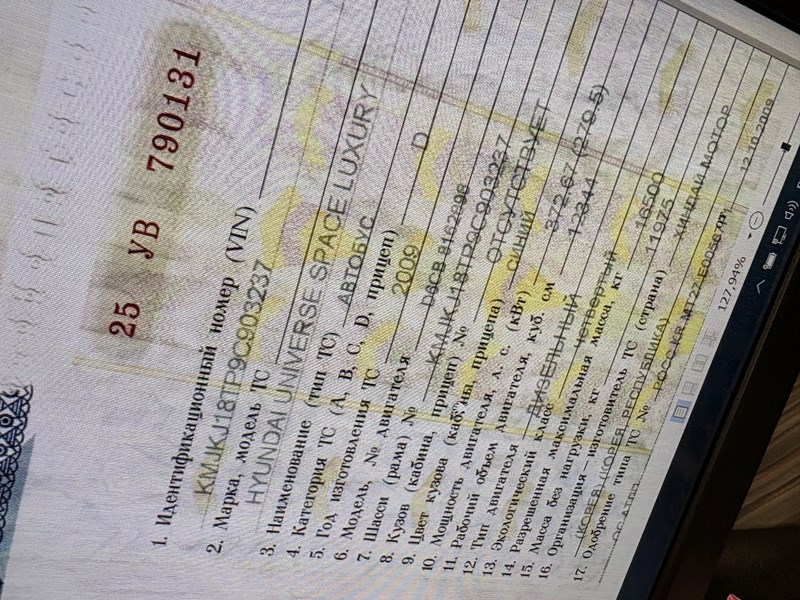 25 УВ 790131
1. Идентификационный номер (VIN) KMJKJ18TP9C903237
2. Марка, модель ТС HYUNDAI UNIVERSE SPACE LUXURY
3. Наименование (тип ТС) АВТОБУС
4. Категория ТС (А, В, С, D, прицеп) D
5. Год изготовления ТС 2009
6. Модель, № двигателя D6CB
7. Шасси (рама) № KMJKJ18TP9C903237
8. Кузов (кабина, прицеп) № ОТСУТСТВУЕТ
9. Цвет кузова (кабины, прицепа) СИНИЙ
10. Мощность двигателя, л. с. (кВт) (279.5)
11. Рабочий объем двигателя, куб. см 12344
12. Тип двигателя ДИЗЕЛЬНЫЙ
13. Экологический класс ЧЕТВЕРТЫЙ
14. Разрешенная максимальная масса, кг 16500
15. Масса без нагрузки, кг 11975
16. Организация – изготовитель ТС (страна) ХИНДАЙ МОТОР
(КОРЕЯ) (КОРЕЯ, РЕСПУБЛИКА)
17. Одобрение типа ТС № РОСС KR.MT27
12.10.2009
127,94%